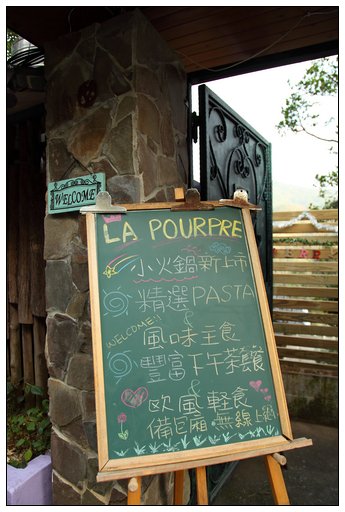 WELCOME
LA POURPRE
小火鍋新上市
精選PASTA
&
WELCOME!!
風味主食
豐富下午茶餐
&
歐風輕食
備包廂.無線上網